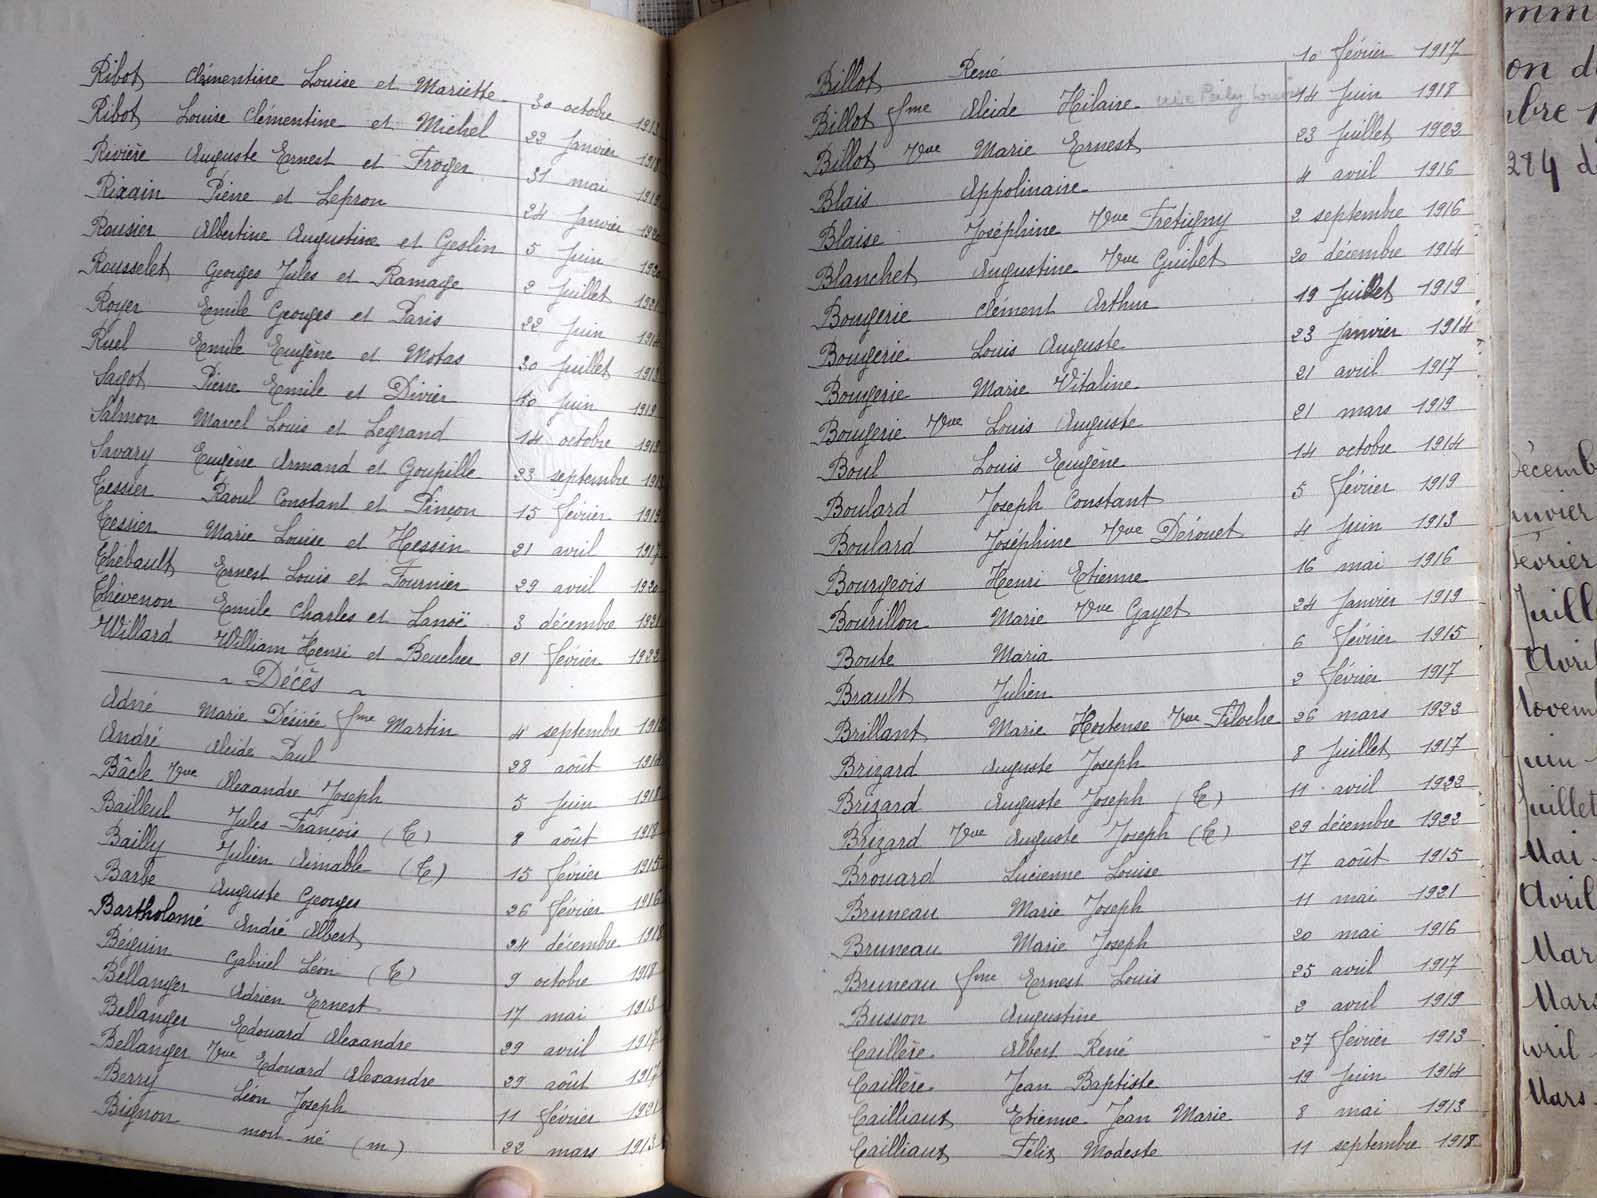 Ribot Clémentine Louise et Mariette 30 octobre
Ribot Louise Clémentine et Michel 22 Janvier 1918
Rivière Auguste Ernest et Froger 31 mai 1919
Rixain Pierre et Lepron 24 Janvier
Rousier Albertine Augustine et Geslin 5 Juin 1920
Rousselet Georges Jules et Ramage 2 Juillet 1921
Royer Emile Georges et Paris 22 Juin 1914
Ruel Emile Eugène et Motas 30 Juillet
Sagot Pierre Emile et Divier 10 Juin 1919
Salmon Marcel Louis et Legrand 14 octobre 1919
Savary Eugène Armand et Goupille 23 septembre
Tessier Raoul Constant et Pinçon 15 février 1919
Tessier Marie Louise et Hessin 21 avril 1917
Thébault Ernest Louis et Fournier 29 avril 1920
Thévenon Emile Charles et Lanoë 3 décembre 1921
Willard William Henri et Beucher 21 février 1922
~ Décès ~
Adné Marie Désirée fme Martin 4 septembre
André Alcide Paul 28 août 1914
Bâcle Vve Alexandre Joseph 5 Juin 1918
Bailleul Jules François (E) 8 août 1918
Bailly Julien Aimable (E) 15 février 1915
Barbe Auguste Georges 26 février 1916
Bartholomé André Albert 24 décembre 1918
Béguin Gabriel Léon (E) 9 octobre 1918
Bellanger Adrien Ernest 17 mai 1913
Bellanger Edouard Alexandre 29 avril 1917
Bellanger Vve Edouard Alexandre 29 août 1917
Berry Léon Joseph 11 février 1921
Bignon mort-né (m) 22 mars 1913
Billot René 10 février 1917
Billot fme Alcide Hilaire 14 Juin 1918
Billot Vve Marie Ernest 23 Juillet 1922
Blais Appolinaire 4 avril 1916
Blaise Joséphine Vve Fretigny 2 septembre 1916
Blanchet Augustine Vve Guibet 20 décembre 1914
Bougerie Clément Arthur 19 Juillet 1919
Bougerie Louis Auguste 23 Janvier 1914
Bougerie Marie Vitaline 21 avril 1917
Bougerie Vve Louis Auguste 21 mars 1919
Boul Louis Eugène 14 octobre 1914
Boulard Joseph Constant 5 février 1919
Boulard Joséphine Vve Dérouet 4 Juin 1913
Bourgeois Henri Etienne 16 mai 1916
Bourillon Marie Vve Gayet 24 Janvier 1919
Boute Maria 6 février 1915
Brault Julien 2 février 1917
Brillant Marie Hortense Vve Filoche 26 mars 1922
Brizard Auguste Joseph 8 Juillet 1917
Brizard Auguste Joseph (E) 11 avril 1922
Brizard Vve Auguste Joseph (E) 29 décembre 1922
Brouard Lucienne Louise 17 août 1915
Bruneau Marie Joseph 11 mai 1921
Bruneau Marie Joseph 20 mai 1916
Bruneau fme Ernest Louis 25 avril 1917
Busson Augustine 2 avril 1919
Caillère Albert René 27 février 1913
Caillère Jean Baptiste 19 Juin 1914
Cailliaux Etienne Jean Marie 8 mai 1913
Cailliaux Félix Modeste 11 septembre 1918
on d
284 d
Juill
Avril
Juillet
Mai
Avril
Mar
Mars
Mars